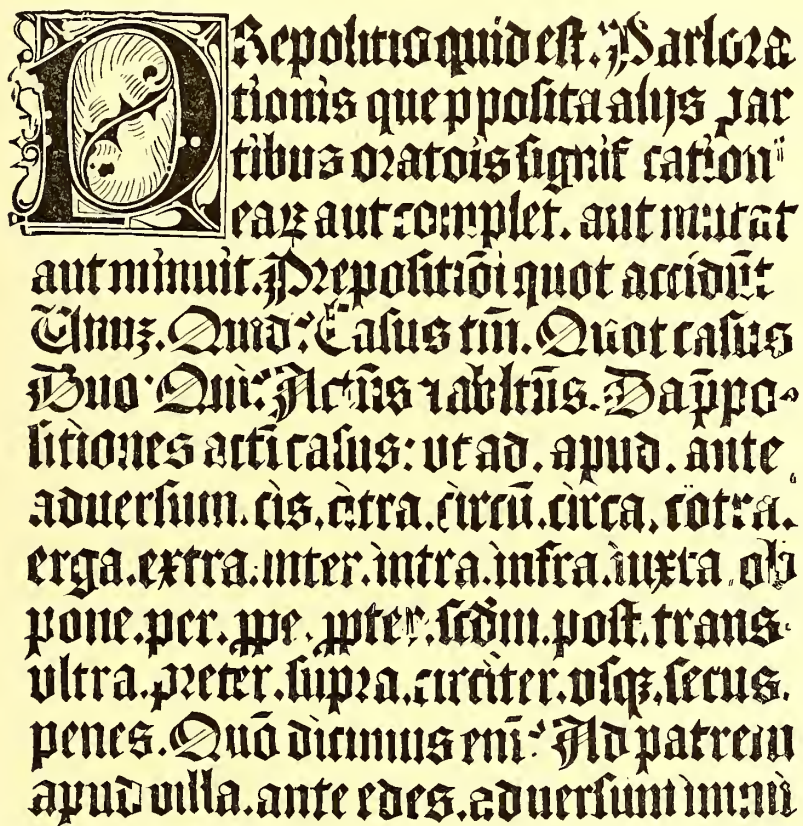 PRepositio quid est. Pars ora
tionis que pposita alijs par
tibus oratõis signif cation
eaꝝ aut complet. aut mutat
aut minuit. Prepositiõi quot accidũt
Unuʒ. Quid? Casus tm̃. Quot casus
Duo Qui? Actũs ⁊ abltũs. Da p̄po⸗
sitiones acti casus: vt ad. apud. ante
aduersum. cis. citra. circũ. circa. cõtra.
erga. extra. inter. intra. infra. iuxta. ob
pone. per. ꝓpe. ꝓpter. scd̃m. post. trans.
vltra. preter. supra. circiter. vsqʒ. secus.
penes. Quõ dicimus eni? Ad patrem
apud villa. ante edes. aduersum